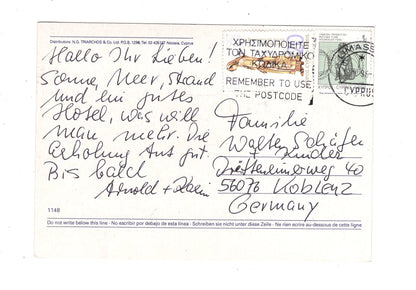 Distributors: N.G. TRIARCHOS & Co. Ltd. P.O.B. 1296, Tel. 02-435187 Nicosia, Cyprus
Hallo Ihr Lieben!
Sonne, Meer, Strand
und ein gutes
Hotel, was will
man mehr. Die
Erholung tut gut
Bis bald
Arnold +
1148
ΧΡΗΣΙΜΟΠΟΙΕΙΤΕ
ΤΟΝ ΤΑΧΥΔΡΟΜΙΚΟ
ΚΩΔΙΚΑ
REMEMBER TO USE
THE POSTCODE
CYPRUS
Familie
Walter Schäfer
Kinder
40
56076 Koblenz
Germany
Do not write below this line - No escribir por debajo de esta línea - Schreiben sie nicht unter diese Zeile - Ne rien écrire au-dessous de cette ligne